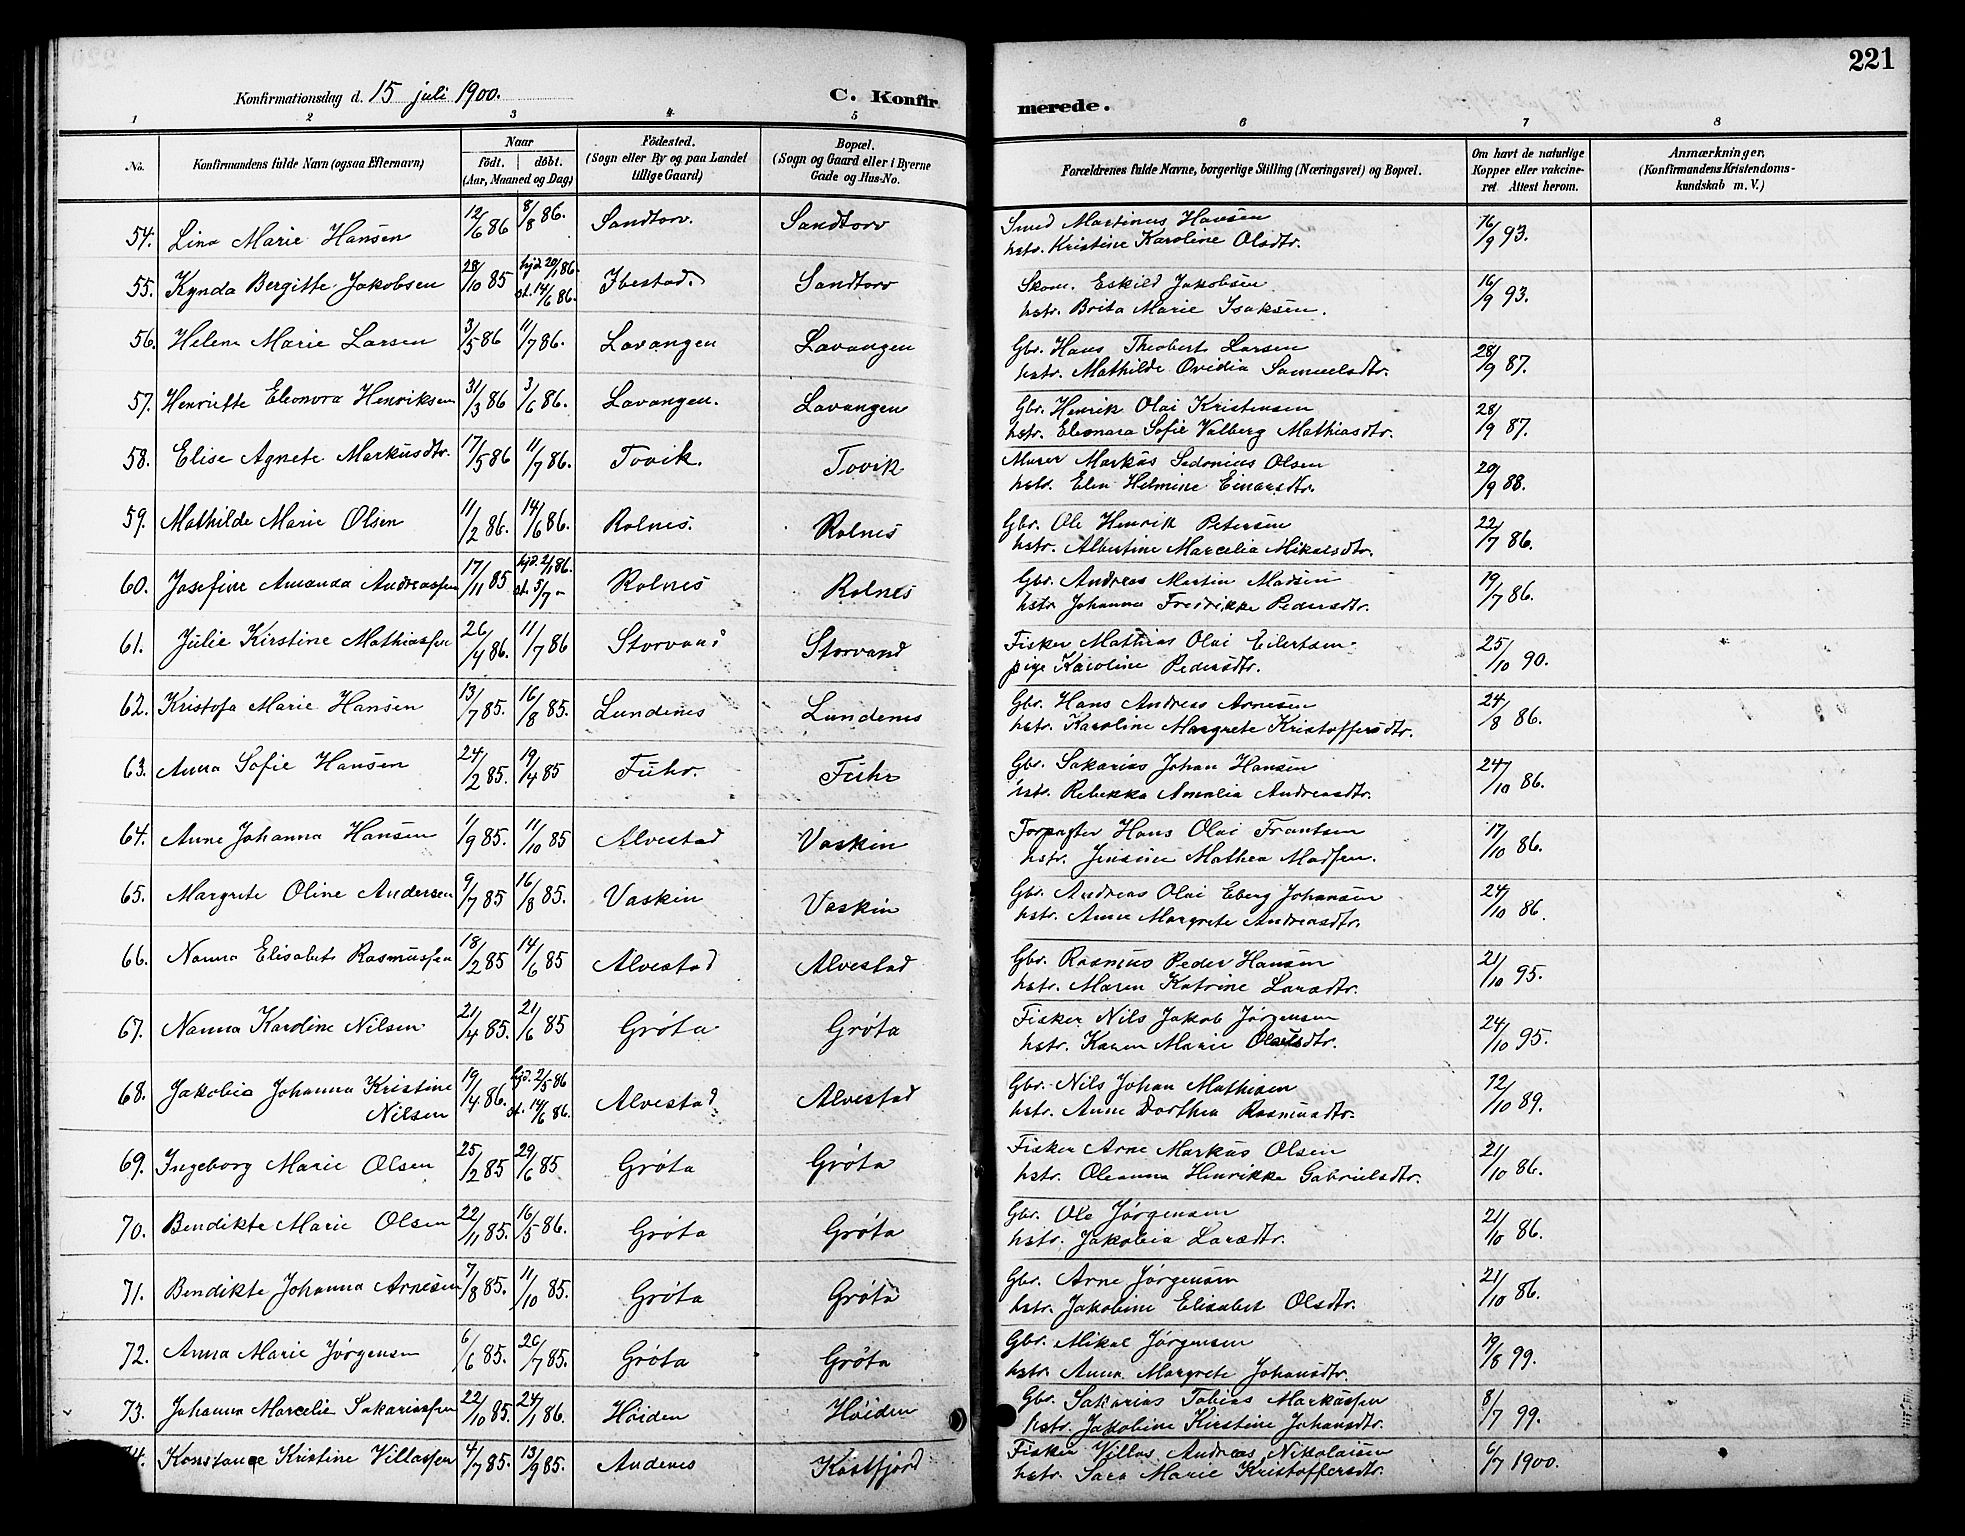 221
Konfirmationsdag d. 15 juli 1900.
C. Konfirmerede.
1 2 3 4 5 6 7 8
No.
Konfirmandens fulde Navn (ogsaa Efternavn)
Naar
födt. döbt.
(Aar, Maaned og Dag)
Födested.
(Sogn eller By og paa Landet
tillige Gaard)
Bopæl.
(Sogn og Gaard eller i Byerne
Gade og Hus-No.
Forældrenes fulde Navne, borgerlige Stilling (Næringsvei) og Bopæl.
Om havt de naturlige
Kopper eller vakcine-
ret. Attest herom.
Anmærkninger.
(Konfirmandens Kristendoms-
kundskab m. V.)
54. Lina Marie Hansen 12/6 86 8/8 86. Sandtorv. Sandtorv Smed Martinus Hansen 16/9 93.
hstr. Kristine Karoline Olsdtr.
55. Kynda Bergitte Jakobsen 28/10 85 hjd. 20/1 86. st. 14/6 86. Ibestad. Sandtorv Skom. Eskild Jakobsen 16/9 93.
hstr. Brita Marie Isaksen.
56. Helene Marie Larsen 3/5 86 11/7 86. Lavangen Lavangen Gbr. Hans Theobert Larsen 28/9 87.
hstr. Mathilde Ovidia Samuelsdtr.
57. Henriette Eleonora Henriksen 31/3 86 3/6 86. Lavangen. Lavangen Gbr. Henrik Olai Kristensen 28/9 87.
hstr. Eleonara Sofie Valberg Mathiasdtr.
58. Elise Agnete Markusdtr. 17/5 86 11/7 86. Tovik. Tovik Murer Markus Sedonius Olsen 20/9 88.
hstr. Elen Helmine Einarsdtr.
59. Mathilde Marie Olsen 11/2 86. 14/6 86. Rolnes. Rolnes Gbr. Ole Henrik Petersen 22/7 86.
hstr. Albertine Marcelia Mikalsdtr.
60. Josefine Amanda Andreassen 17/11 85 hjd. 2/1 86. st. 5/7 - Rolnes Rolnes Gbr. Andreas Martin Madsen 19/7 86.
hstr. Johanna Fredrikke Pedersdtr.
61. Julie Kirstine Mathiassen 26/4 86. 11/7 86 Storvand Storvand Fisker Mathias Olai Eilertsen 25/10 90.
pige Karoline Pedersdtr.
62. Kristofa Marie Hansen 13/7 85. 16/8 85. Lundenes Lundenes Gbr. Hans Andreas Arnesen 24/8 86.
hstr. Karoline Margrete Kristoffersdtr.
63. Anna Sofie Hansen 24/2 85. 19/4 85 Fuhr. Fuhr Gbr. Sakarias Johan Hansen 24/10 86.
hstr. Rebekka Amalia Andreasdtr.
64. Anne Johanna Hansen 1/9 85. 11/10 85 Alvestad Vaskin Forpagter Hans Olai Frantsen 17/10 86.
hstr. Jensine Mathea Madsen.
65. Margrete Oline Andersen 9/7 85 16/8 85. Vaskin Vaskin Gbr. Andreas Olai Eberg Johansen 24/10 86.
hstr. Anne Margrete Andreasdtr.
66. Nanna Elisabet Rasmussen 18/2 85 14/6 85 Alvestad Alvestad Gbr. Rasmus Peder Hansen 21/10 95.
hstr. Maren Katrine Larsdtr.
67. Nanna Karoline Nilsen 21/4 85. 21/6 85 Gröta Gröta Fisker Nils Jakob Jörgensen 24/10 95.
hstr. Karen Marie Olsdtr.
68. Jakobia Johanna Kristine 19/4 86. hjd. 2/5 86 st. 14/6 86. Alvestad Alvestad Gbr. Nils Johan Mathisen 12/10 89.
Nilsen hstr. Anne Dorthea Rasmusdtr.
69. Ingeborg Marie Olsen 25/2 85 29/6 85 Gröta Gröta Fisker Arne Markus Olsen 21/10 86.
hstr. Oleanna Henrikke Gabrielsdtr.
70. Bendikte Marie Olsen 22/11 85. 16/5 86. Gröta Gröta Gbr. Ole Jörgensen 21/10 86.
hstr. Jakobia Larsdtr.
71. Bendikte Johanna Arnesen 7/8 85. 11/10 85. Gröta Gröta Gbr. Arne Jörgensen 21/10 86.
hstr. Jakobine Elisabet Olsdtr.
72. Anna Marie Jörgensen 6/6 85. 26/7 85. Gröta Gröta Gbr. Mikal Jörgensen 19/8 99.
hstr. Anna Margrete Johansdtr.
73. Johanna Marcelie Sakariassen 22/10 85. 24/1 86. Höiden Höiden Gbr. Sakarias Tobias Markussen 8/7 99.
hstr. Jakobine Kirstine Johansdtr.
4. Konstance Kristine Villassen 4/7 85. 13/9 85. Andenes Kastfjord Fisker Villas Andreas Nikolaisen 6/7 1900.
hstr. Sara Marie Kristoffersdtr.